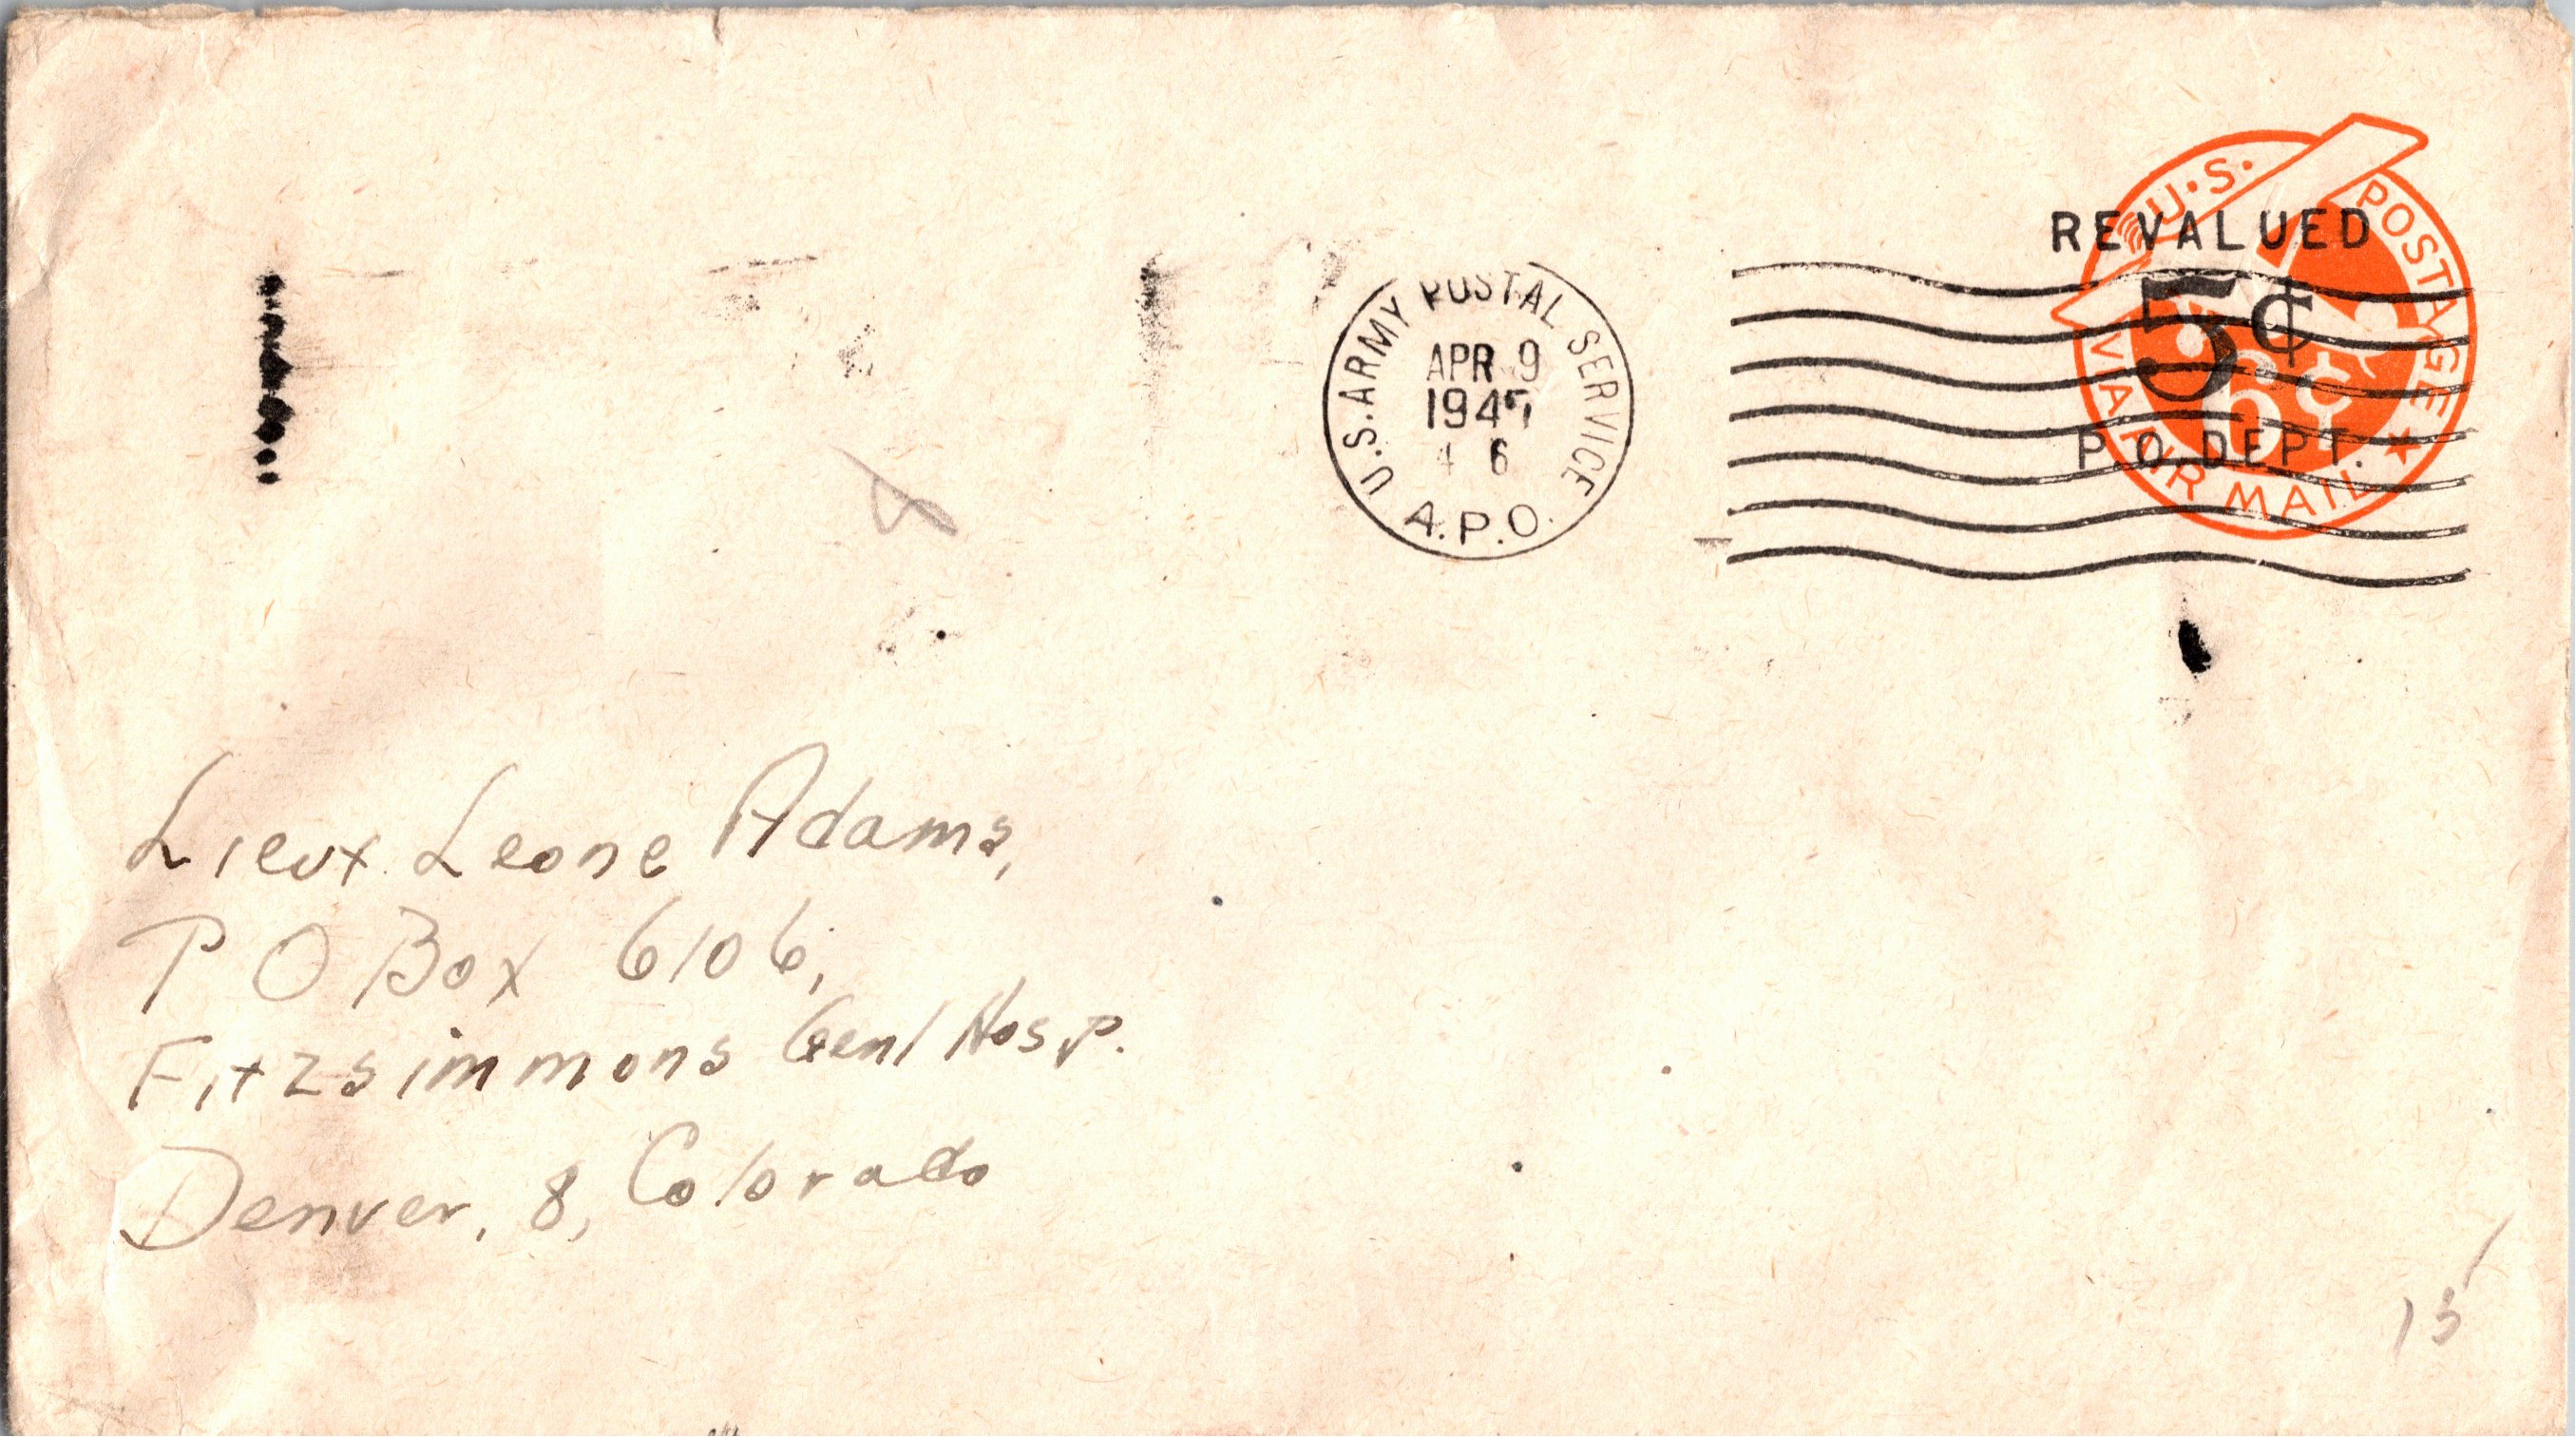 U.S. POSTAGE
VIA AIR MAIL
6¢
REVALUED
5¢
P.O.DEPT.
U.S.ARMY POSTAL SERVICE
APR 9
1947
6
A.P.O.
Lieut. Leone Adams,
P O Box 6106,
Fitzsimmons Genl Hosp.
Denver, 8, Colorado
13